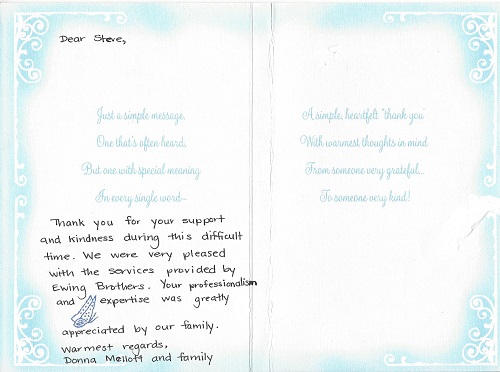 Dear Steve,
Just a simple message,
One that's often heard,
But one with special meaning
In every single word—
Thank you for your support
and kindness during this difficult
time. We were very pleased
with the services provided by
Ewing Brothers. Your professionalism
and expertise was greatly
appreciated by our family.
Warmest regards,
Donna Mellott and family
A simple, heartfelt "thank you"
With warmest thoughts in mind
From someone very grateful...
To someone very kind!